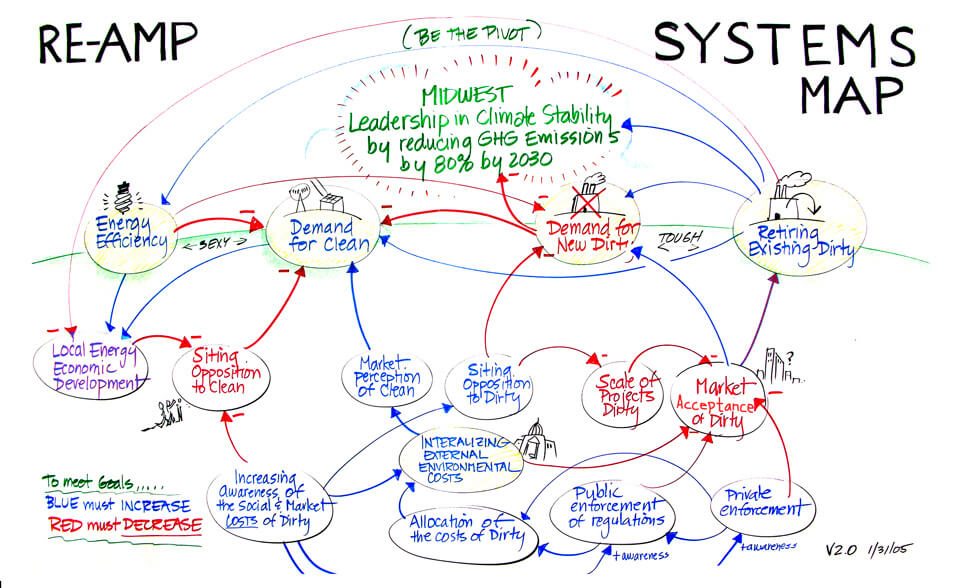 RE-AMP
SYSTEMS
MAP
(BE THE PIVOT)
MIDWEST
Leadership in Climate Stability
by reducing GHG Emissions
by 80% by 2030
Energy
Efficiency
← SEXY →
Demand
for Clean
Demand for
New Dirt
TOUGH
Retiring
Existing-Dirty
Local Energy
Economic
Development
Siting
Opposition
to Clean
Market
Perception
of Clean
Siting
Opposition
to Dirty
Scale of
Projects
Dirty
Market
Acceptance
of Dirty
?
INTERALIZING
EXTERNAL
ENVIRONMENTAL
COSTS
Increasing
awareness of
the Social & Market
COSTS of Dirty
Allocation of
the costs of Dirty
Public
enforcement
of regulations
Private
enforcement
+awareness
+awareness
To meet Goals.....
BLUE must INCREASE
RED must DECREASE
V2.0 1/31/05